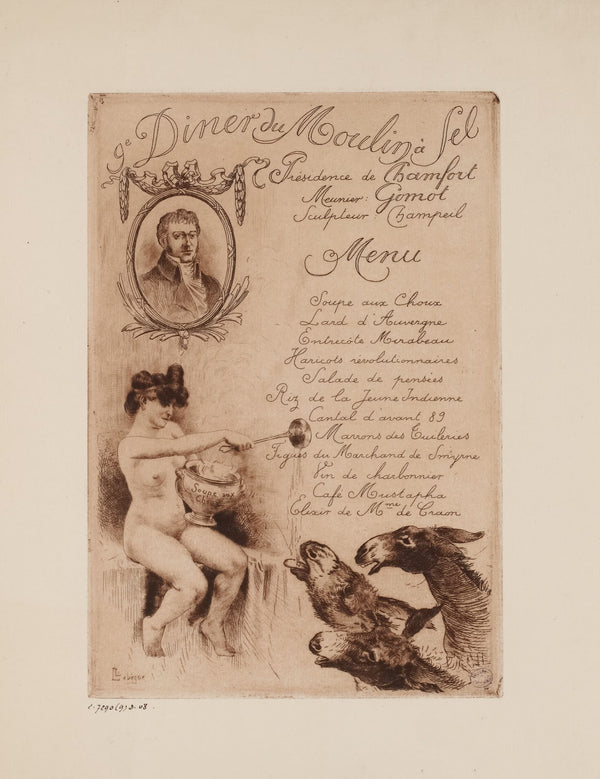 9e Diner du Moulin à Sel
Présidence de Chamfort
Meunier: Gomot
Sculpteur Champeil
Menu
Soupe aux Choux
Lard d'Auvergne
Entrecôte Mirabeau
Haricots révolutionnaires
Salade de pensées
Riz de la Jeune Indienne
Cantal d'avant 89
Marrons des Tuileries
Figues du Marchand de Smyrne
Vin de charbonnier
Café Mustapha
Elixir de Mme de Craon
Soupe aux
Ch